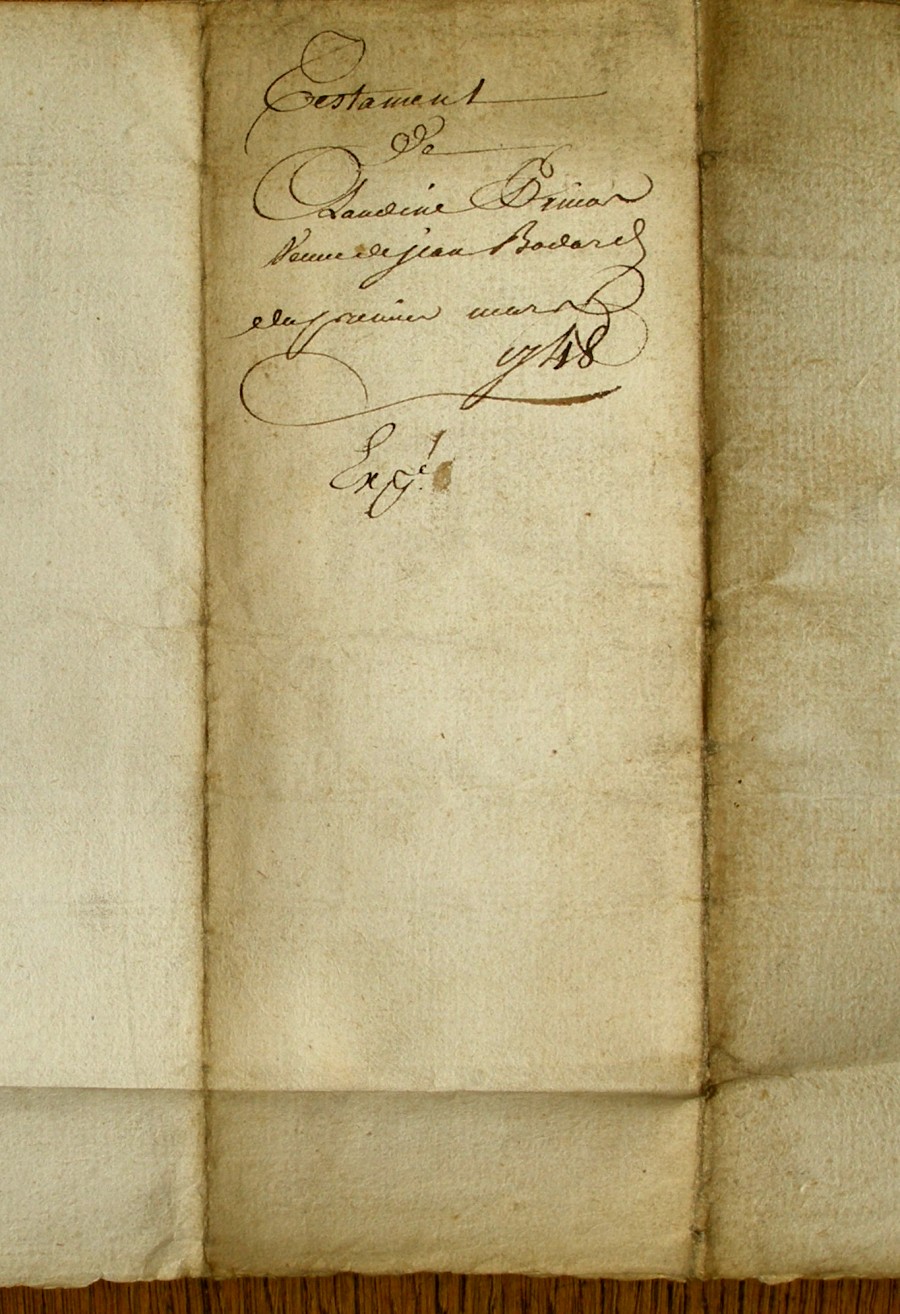 Testament
De
Claudine Primar
Veuve de jean Bodard
du premier mars
1748
Exp.é